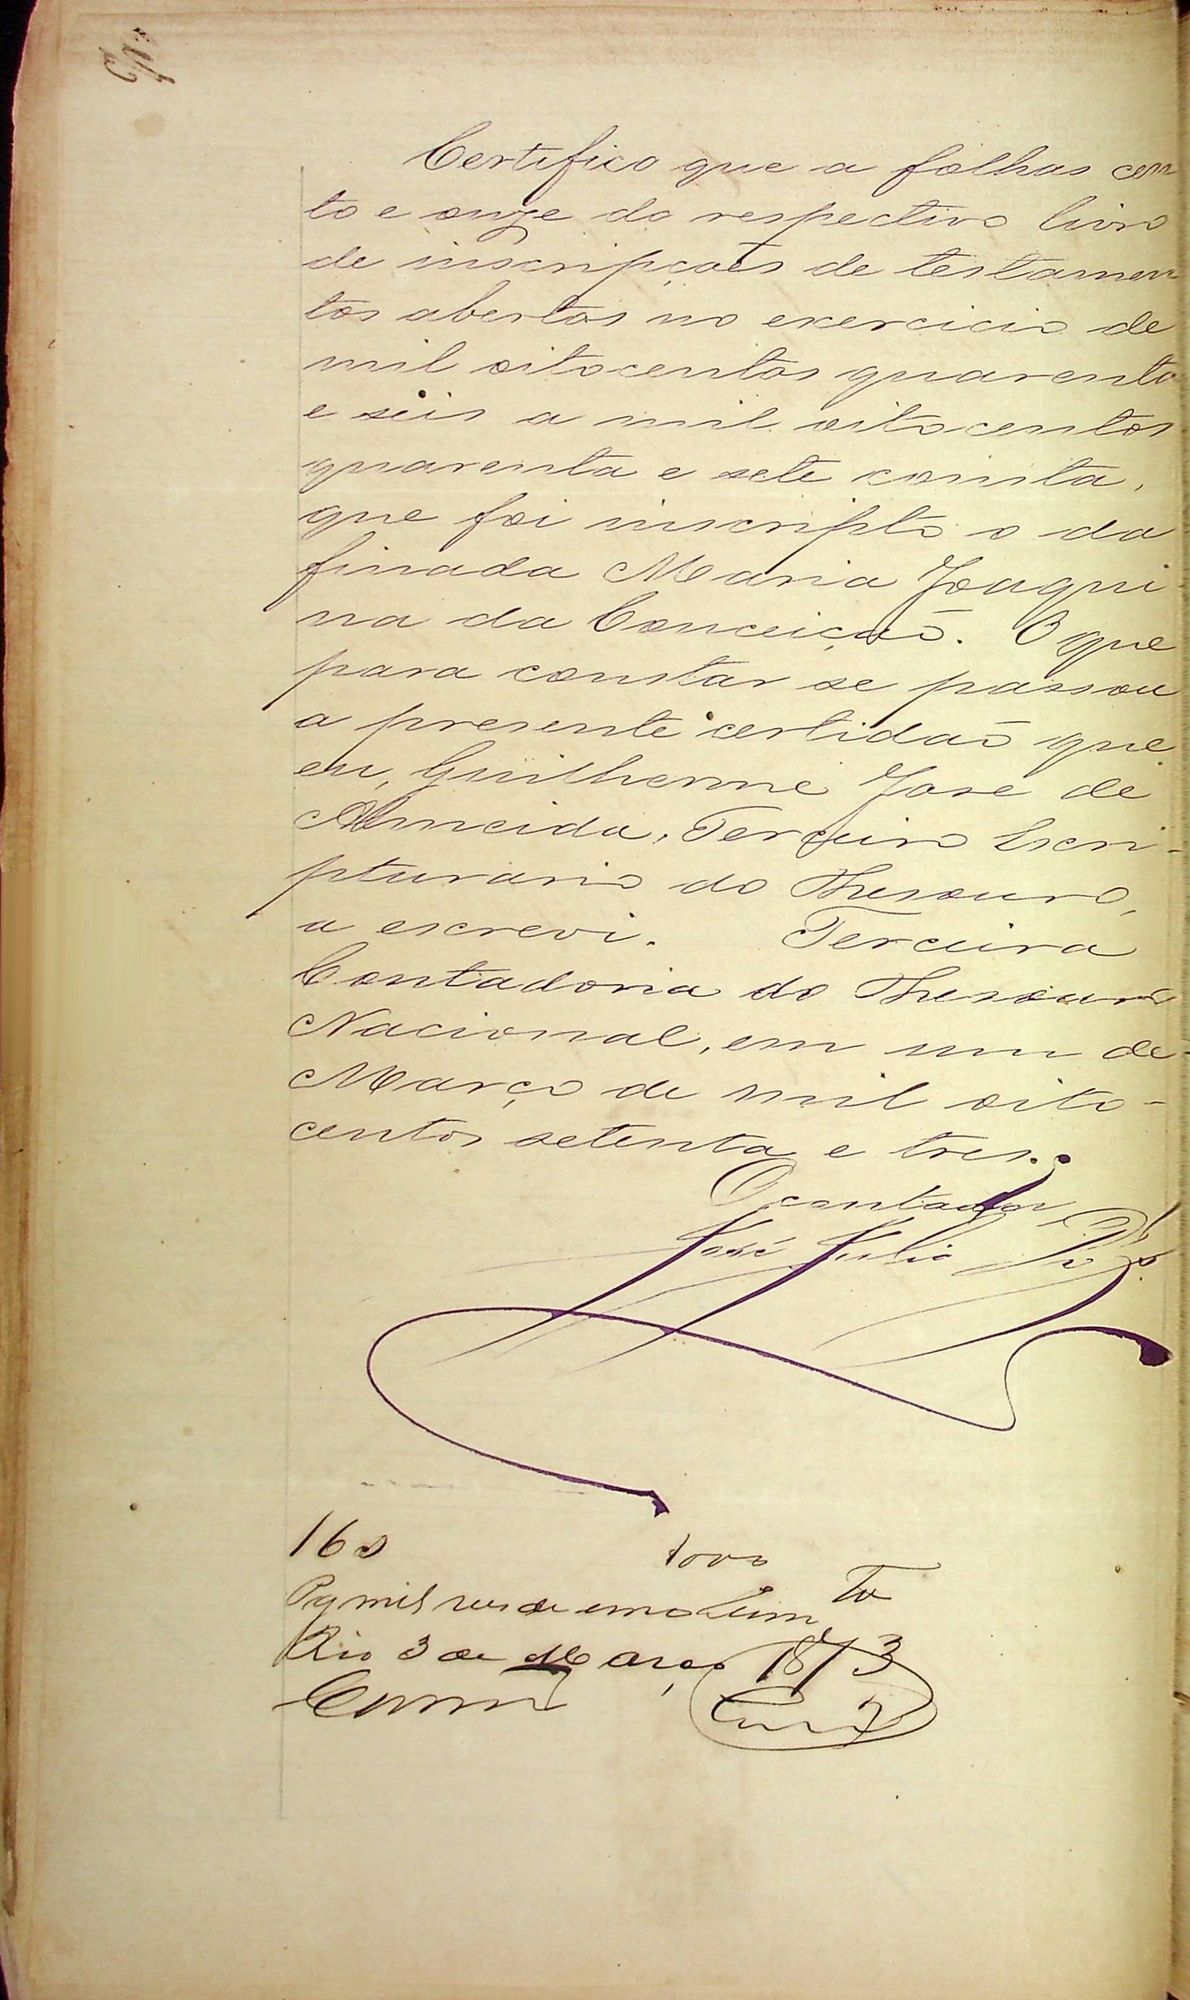 Certifico que a folhas cen
to e onze do respectivo livro
de inscripçoẽs de testamen
tos abertos no exercicio de
mil oitocentos quarenta
e seis a mil oitocentos
quarenta e sete consta,
que foi inscripto o da
finada Maria Joaqui-
na da Conceiçaõ. O que
para constar se passou
a presente certidaõ que
eu, Guilherme José de
Almeida, Terceiro Escri-
pturario do Thesouro,
a escrevi. Terceira
Contadoria do Thesouro
Nacional, em um de
Março de mil oito-
centos setenta e tres.
O contador
José Julio
160 1000
Pg mil reis de emolum to
Rio 3 de Março 1873